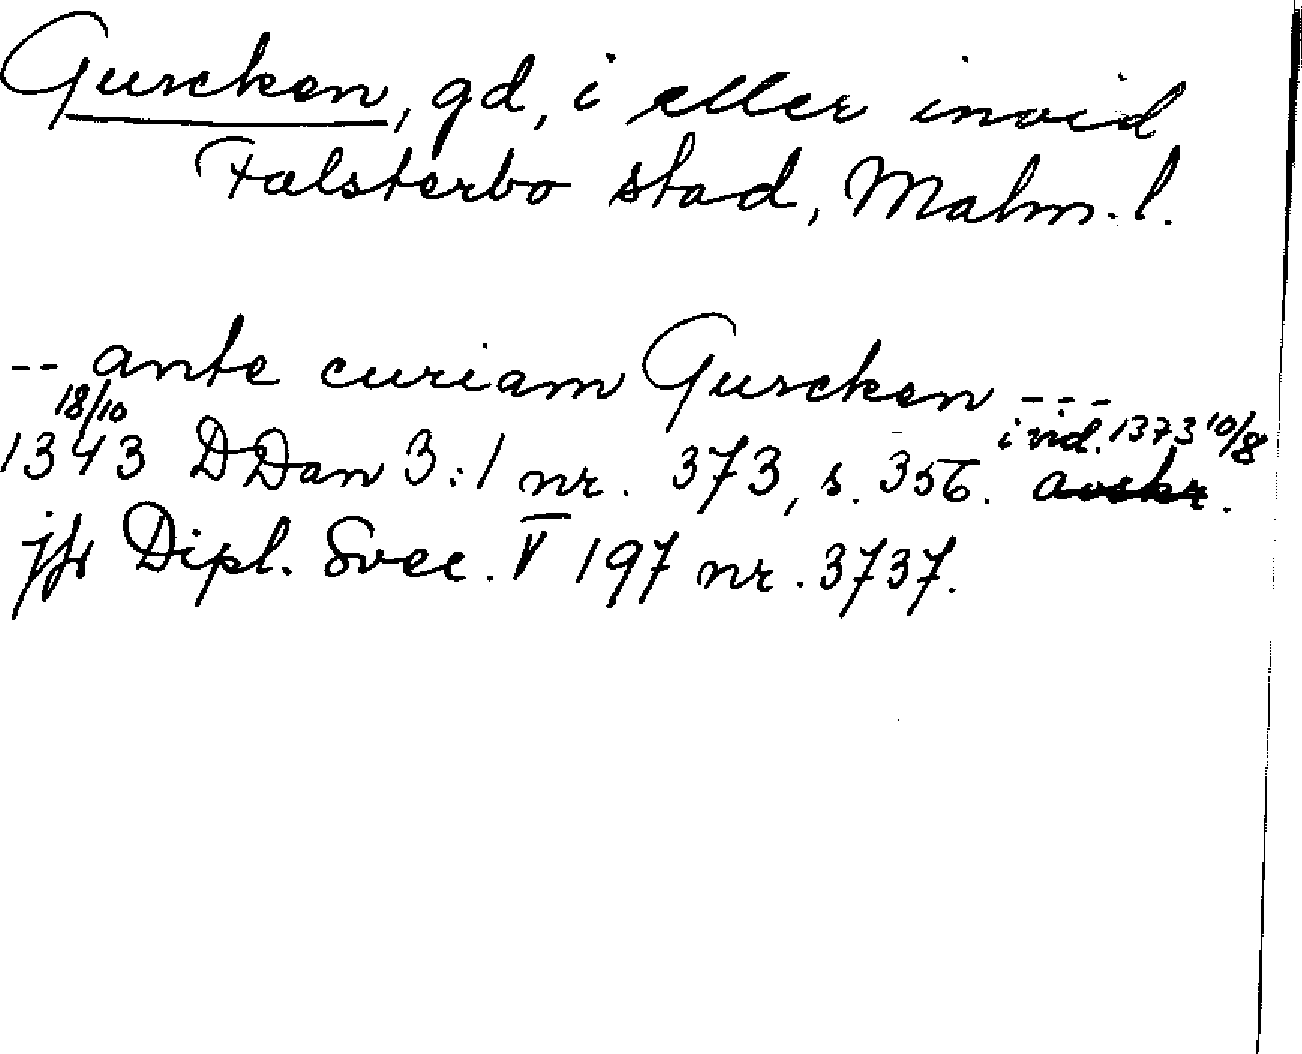 Gurcken, gd, i eller invid
Falsterbo stad, Malm. l.
-- ante curiam Gurcken ---
18/10
i vid. 1373 10/8
1343 DDan 3:1 nr. 373, s. 356. avskr.
jfr Dipl. Svec. V 197 nr. 3737.